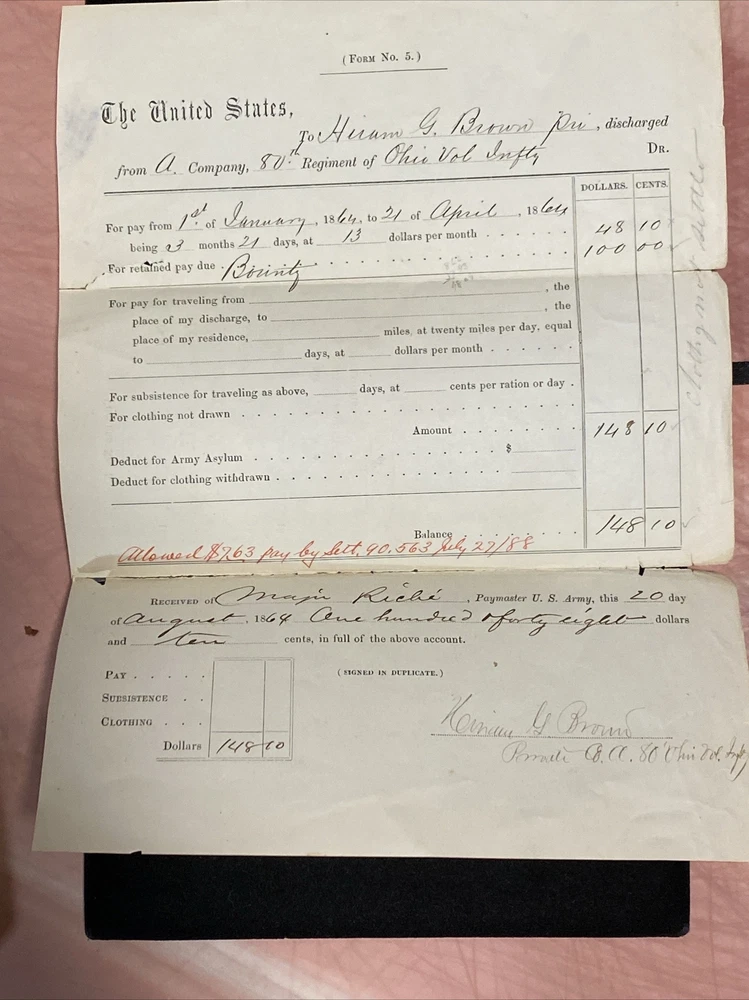 (FORM NO. 5.)
The United States,
To Hiram G. Brown Pri, discharged
from A. Company, 80.th Regiment of Ohio Vol Infty DR.
DOLLARS. CENTS.
For pay from 1st of January, 1864, to 21 of April, 1864
being 3 months 21 days, at 13 dollars per month . . . . . . 48 10
For retained pay due . Bounty . . . . . . 100 00
For pay for traveling from , the
place of my discharge, to , the
place of my residence, miles, at twenty miles per day, equal
to days, at dollars per month . . . . . .
For subsistence for traveling as above, days, at cents per ration or day .
For clothing not drawn . . . . . .
Amount . . . . . . 148 10
Deduct for Army Asylum . . . . . . $
Deduct for clothing withdrawn . . . . . .
Balance . . . . . . 148 10
Allowed $7.63 pay by Sett. 90.563 July 27/88
RECEIVED of Major Riché, Paymaster U. S. Army, this 20 day
of August, 1864 One hundred & forty eight dollars
and ten cents, in full of the above account.
(SIGNED IN DUPLICATE.)
PAY . . . . .
SUBSISTENCE . .
CLOTHING . . .
Dollars 148 10
Hiram G. Brown
Private Co. A. 80 Ohio Vol. Infty